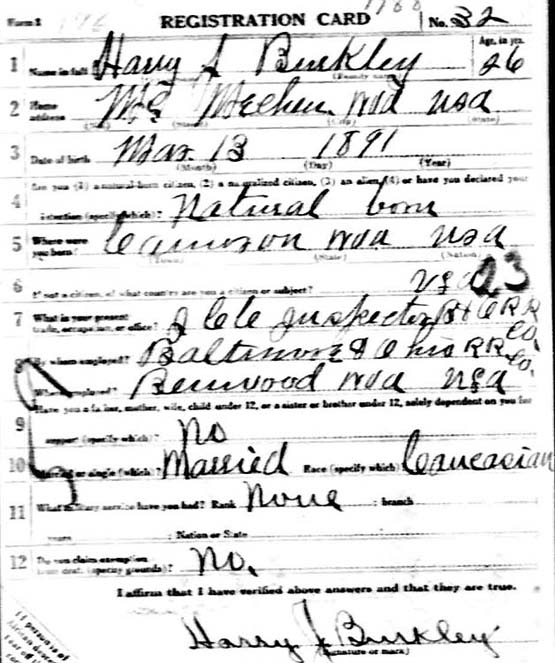 Form 1 REGISTRATION CARD No. 32
1 Name in full Harry J Burkley Age, in yrs. 26
(Family name)
2 Home address Mc Mechen Wva USA
(State)
3 Date of birth Mar. 13 1891
(Month) (Day) (Year)
4 Are you (1) a natural-born citizen, (2) a naturalized citizen, (3) an alien, (4) or have you declared your
intention (specify which)? Natural born
5 Where were you born? Cameron Wva USA
(Town) (State) (Nation)
6 If not a citizen, of what country are you a citizen or subject? USA 23
7 What is your present trade, occupation, or office? Inspector B & O RR Co.
8 By whom employed? Baltimore & Ohio RR Co.
Where employed? Benwood Wva USA
9 Have you a father, mother, wife, child under 12, or a sister or brother under 12, solely dependent on you for
support (specify which)? No
10 Married or single (which)? Married Race (specify which)? Caucasian
11 What military service have you had? Rank None ; branch
years ; Nation or State
12 Do you claim exemption from draft (specify grounds)? No.
I affirm that I have verified above answers and that they are true.
Harry J Burkley
(Signature or mark)